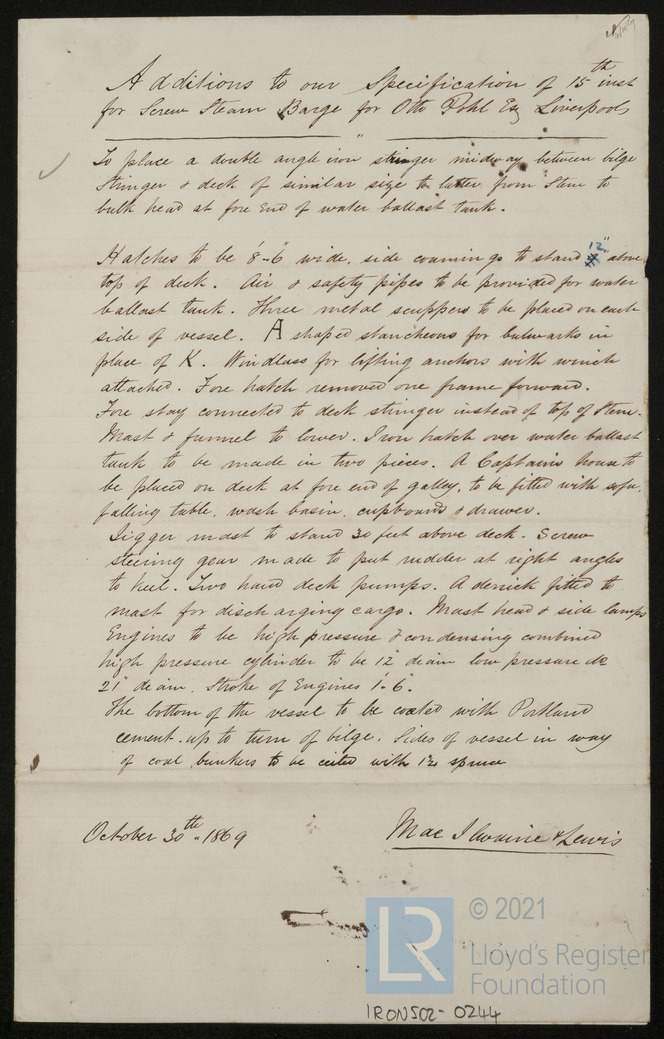 Additions to our Specification of 15th inst
for Screw Steam Barge for Otto Pohl Esq Liverpool
To place a double angle iron stringer midway between bilge
Stringer & deck of similar size to latter from Stem to
bulk head at fore End of water ballast tank.
Hatches to be 8'-6" wide, side coamings to stand 12" above
top of deck. Air & safety pipes to be provided for water
ballast tank. Three metal scuppers to be placed on each
side of vessel. A shaped stancheons for bulwarks in
place of K. Windlass for lifting anchors with winch
attached. Fore hatch removed one frame forward.
Fore stay connected to deck stringer instead of top of Stem.
Mast & funnel to lower. Iron hatch over water ballast
tank to be made in two pieces. A Captains house to
be placed on deck at fore end of galley, to be fitted with sofa,
falling table, wash basin, cupboards & drawer.
Jigger mast to stand 30 feet above deck. Screw
steering gear made to put rudder at right angles
to keel. Two hand deck pumps. A derrick fitted to
mast for discharging cargo. Mast head & side lamps
Engines to be high pressure & condensing combined
high pressure cylinder to be 12" diam low pressure do
21" diam. Stroke of Engines 1'-6".
The bottom of the vessel to be coated with Portland
cement up to turn of bilge. Sides of vessel in way
of coal bunkers to be ceiled with 1½ spruce
October 30th 1869
Mac Ilwaine & Lewis
LR
© 2021
Lloyd's Register
Foundation
IRON502-0244